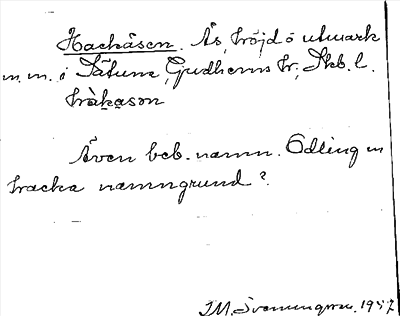 Hackåsen. Ås, höjd o utmark
m.m. i Sätuna, Gudhems hr, Skb. l.
hàkasɷn
Även beb. namn. Odling m
hacka namngrund?
J.M. Svenungsson. 1957